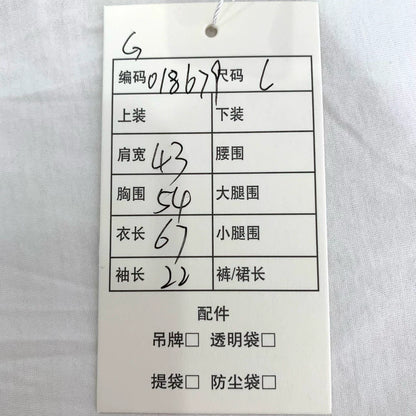 G
编码 018679 尺码 L
上装 下装
肩宽 43 腰围
胸围 54 大腿围
衣长 67 小腿围
袖长 22 裤/裙长
配件
吊牌□ 透明袋□
提袋□ 防尘袋□